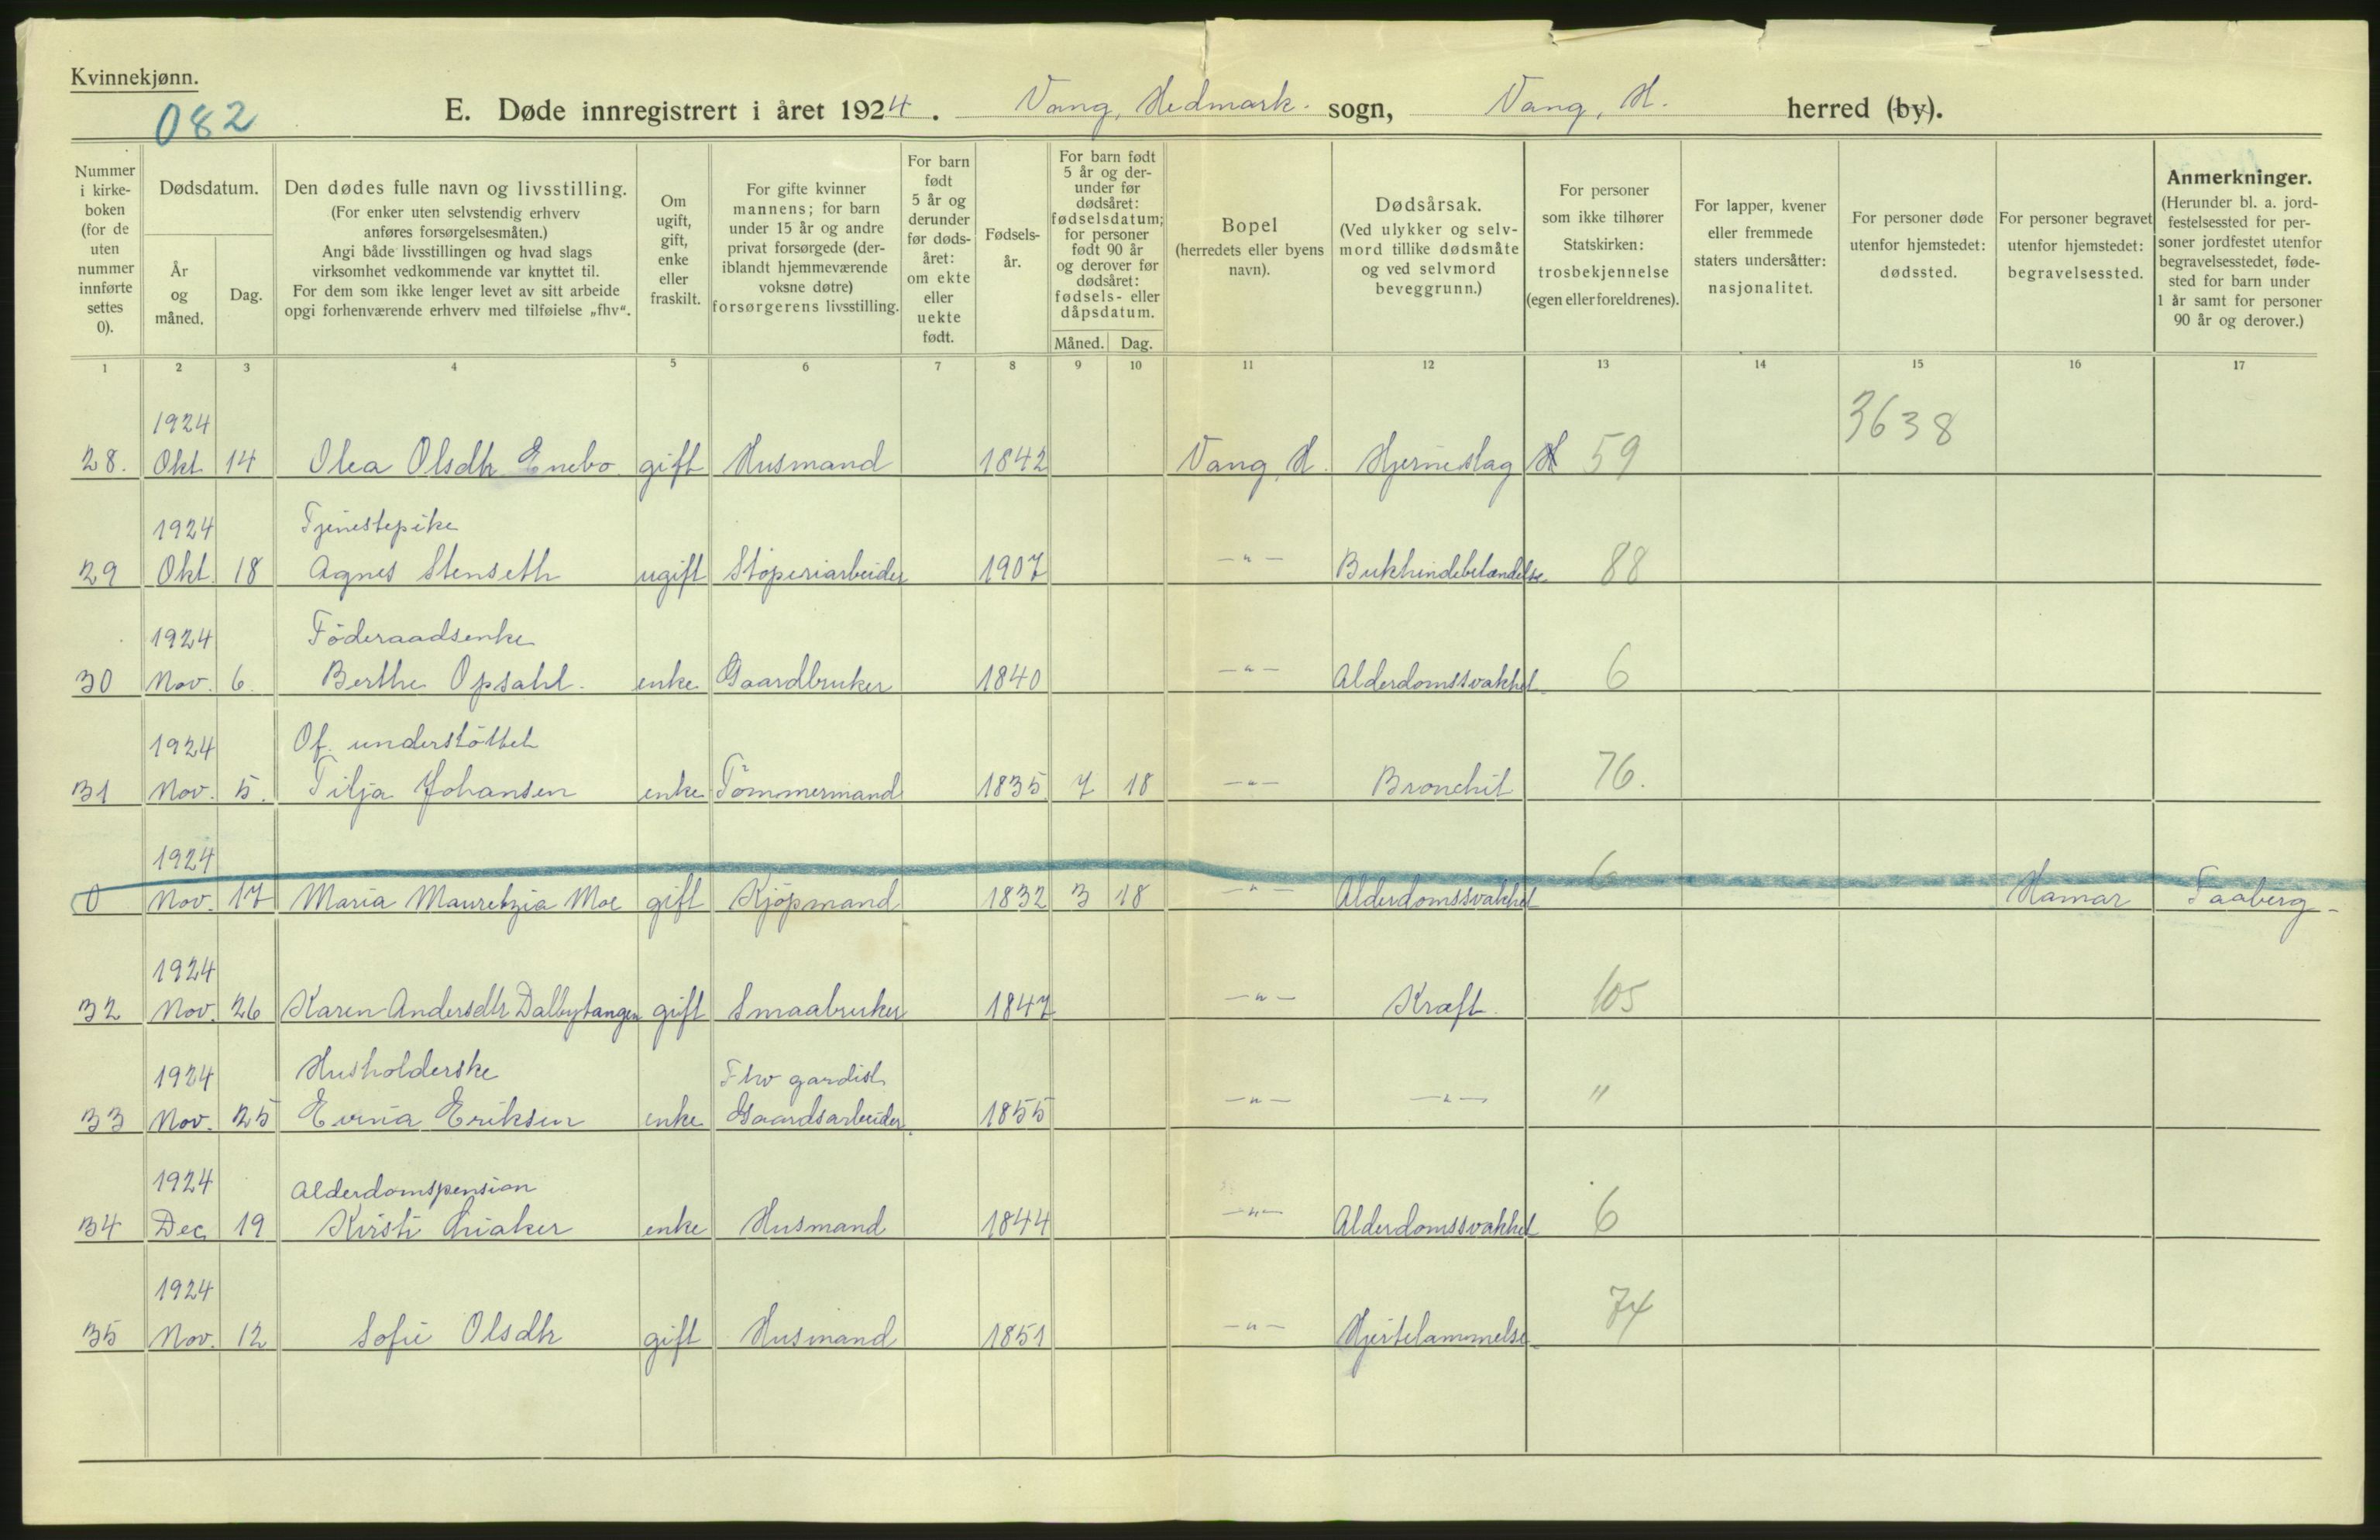 Kvinnekjønn.
082
E. Døde innregistrert i året 1924. Vang, Hedmark. sogn, Vang, H. herred (by).
Nummer i kirke-boken (for de uten nummer innførte settes 0).
Dødsdatum.
År og måned.
Dag.
Den dødes fulle navn og livsstilling.
(For enker uten selvstendig erhverv anføres forsørgelsesmåten.)
Angi både livsstillingen og hvad slags virksomhet vedkommende var knyttet til.
For dem som ikke lenger levet av sitt arbeide opgi forhenværende erhverv med tilføielse „fhv“.
Om ugift, gift, enke eller fraskilt.
For gifte kvinner mannens; for barn under 15 år og andre privat forsørgede (der-iblandt hjemmeværende voksne døtre) forsørgerens livsstilling.
For barn født 5 år og derunder før døds-året: om ekte eller uekte født.
Fødsels-år.
For barn født 5 år og der-under før dødsåret: fødselsdatum; for personer født 90 år og derover før dødsåret: fødsels- eller dåpsdatum.
Måned. Dag.
Bopel (herredets eller byens navn).
Dødsårsak. (Ved ulykker og selv-mord tillike dødsmåte og ved selvmord beveggrunn.)
For personer som ikke tilhører Statskirken: trosbekjennelse (egen eller foreldrenes).
For lapper, kvener eller fremmede staters undersåtter: nasjonalitet.
For personer døde utenfor hjemstedet: dødssted.
For personer begravet utenfor hjemstedet: begravelsessted.
Anmerkninger. (Herunder bl. a. jord-festelsessted for per-soner jordfestet utenfor begravelsesstedet, føde-sted for barn under 1 år samt for personer 90 år og derover.)
1 2 3 4 5 6 7 8 9 10 11 12 13 14 15 16 17
1924 3638
28. Okt. 14 Olea Olsdtr Enebo gift Husmand 1842 Vang, H. Hjerneslag 59
1924 Tjenestepike
29 Okt. 18 Agnes Stenseth ugift Støperiarbeider 1907 -"- Bukhindebetændelse 88
1924 Föderaadsenke
30 Nov. 6. Berthe Opsahl. enke Gaardbruker 1840 -"- Alderdomssvakhet 6
1924 Of. understöttet
31 Nov. 5. Tilja Johansen enke Tömmermand 1835 7 18 -"- Bronchit 76.
1924
0 Nov. 17 Maria Mauretzia Moe gift Kjöpmand 1832 3 18 -"- Alderdomssvakhet 6 Hamar Faaberg
1924
32 Nov. 26 Karen Andersdtr Dalbytangen gift Smaabruker 1847 -"- Kræft. 105
1924 Husholderske Fhv gardist
33 Nov. 25 Evina Eriksen enke Gaardsarbeider 1855 -"- -"- "
1924 Alderdomspension
34 Dec. 19 Kirsti enke Husmand 1844 -"- Alderdomssvakhet 6
1924
35 Nov. 12 Sofie Olsdtr gift Husmand 1851 -"- Hjertelammelse 74